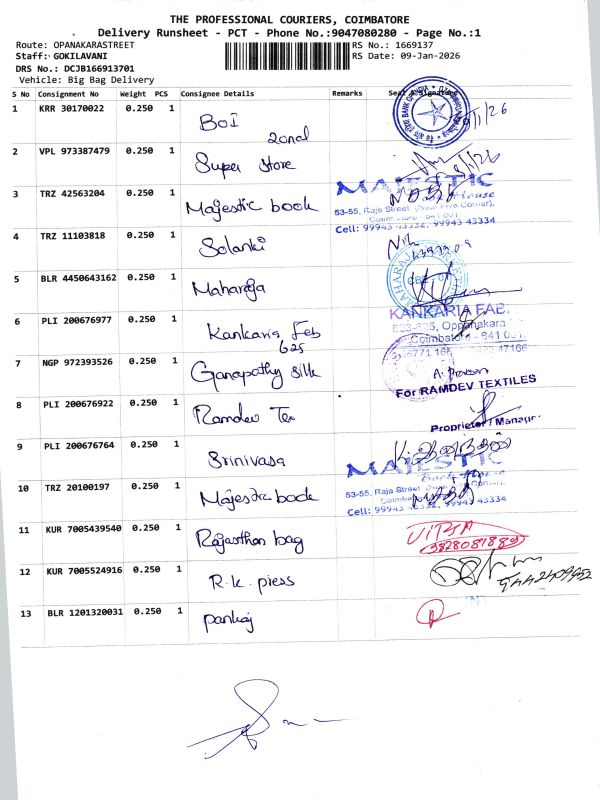 THE PROFESSIONAL COURIERS, COIMBATORE
Delivery Runsheet - PCT - Phone No.:9047080280 - Page No.:1
Route: OPANAKARASTREET
RS No.: 1669137
Staff: GOKILAVANI
RS Date: 09-Jan-2026
DRS No.: DCJB166913701
Vehicle: Big Bag Delivery
S No Consignment No Weight PCS Consignee Details Remarks Seal & Signature
1 KRR 30170022 0.250 1 BOI
zonal
2 VPL 973387479 0.250 1 Super Store
3 TRZ 42563204 0.250 1 Majestic book
MAJESTIC
53-55, Raja Street, (Near Five Corner),
Coimbatore - 641 001
Cell: 99943 43332, 99943 43334
4 TRZ 11103818 0.250 1 Solanki
5 BLR 4450643162 0.250 1 Maharaja
6 PLI 200676977 0.250 1 Kankaria Feb
625
KANKARIA FAB
Oppanakara
Coimbatore - 641 001
7 NGP 972393526 0.250 1 Ganapathy Silk
8 PLI 200676922 0.250 1 Ramdev Tex
For RAMDEV TEXTILES
Proprietor / Manager
9 PLI 200676764 0.250 1 Srinivasa
10 TRZ 20100197 0.250 1 Majestic book
MAJESTIC
53-55, Raja Street,
Cell: 99943 43332, 99943 43334
11 KUR 7005439540 0.250 1 Rajasthan bag
12 KUR 7005524916 0.250 1 R.K. press
13 BLR 1201320031 0.250 1 pankaj